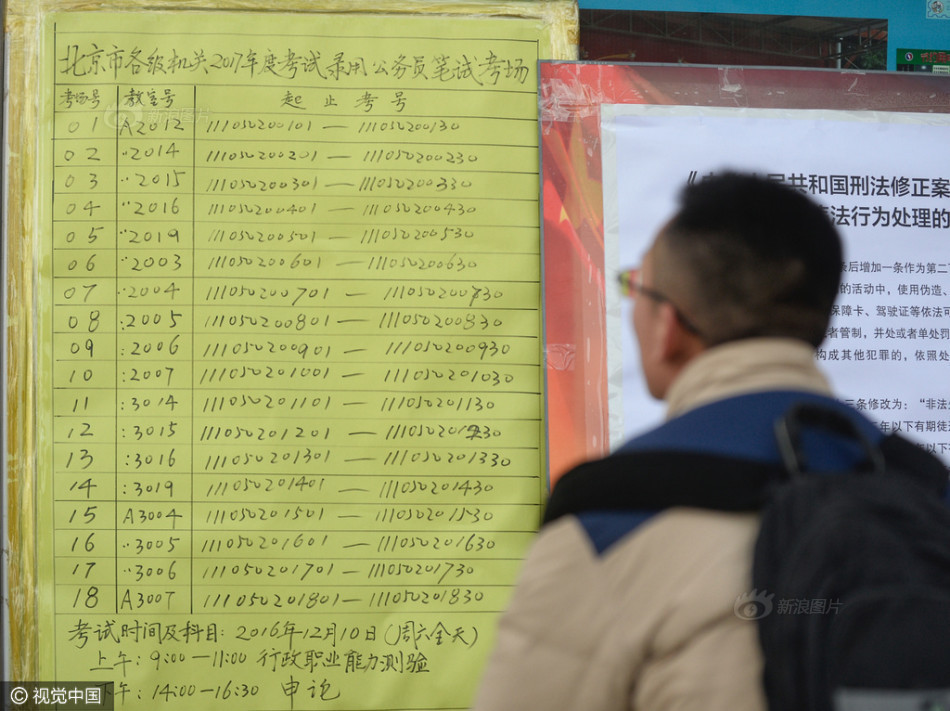 北京市各级机关2017年度考试录用公务员笔试考场
考场号 教室号 起止考号
01 A2012 111050200101—111050200130
02 ··2014 111050200201—111050200230
03 ··2015 111050200301—111050200330
04 ··2016 111050200401—111050200430
05 ··2019 111050200501—111050200530
06 ··2003 111050200601—111050200630
07 ··2004 111050200701—111050200730
08 :2005 111050200801—111050200830
09 :2006 111050200901—111050200930
10 :2007 111050201001—111050201030
11 :3014 111050201101—111050201130
12 :3015 111050201201—111050201230
13 :3016 111050201301—111050201330
14 :3019 111050201401—111050201430
15 A3004 111050201501—111050201530
16 ··3005 111050201601—111050201630
17 ··3006 111050201701—111050201730
18 A3007 111050201801—111050201830
考试时间及科目:2016年12月10日(周六全天)
上午:9:00—11:00 行政职业能力测验
午:14:00—16:30 申论
共和国刑法修正案
法行为处理的
条后增加一条作为第二
的活动中,使用伪造、
保障卡、驾驶证等依法可
者管制,并处或者单处罚
构成其他犯罪的,依照处
三条修改为:“非法
年以下有期徒
以下
新浪图片
© 视觉中国